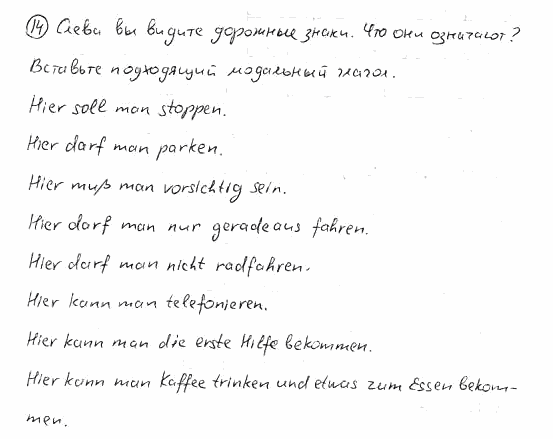 14 Слева вы видите дорожные знаки. Что они означают?
Вставьте подходящий модальный глагол.
Hier soll man stoppen.
Hier darf man parken.
Hier muß man vorsichtig sein.
Hier darf man nur geradeaus fahren.
Hier darf man nicht radfahren.
Hier kann man telefonieren.
Hier kann man die erste Hilfe bekommen.
Hier kann man Kaffee trinken und etwas zum Essen bekom-
men.